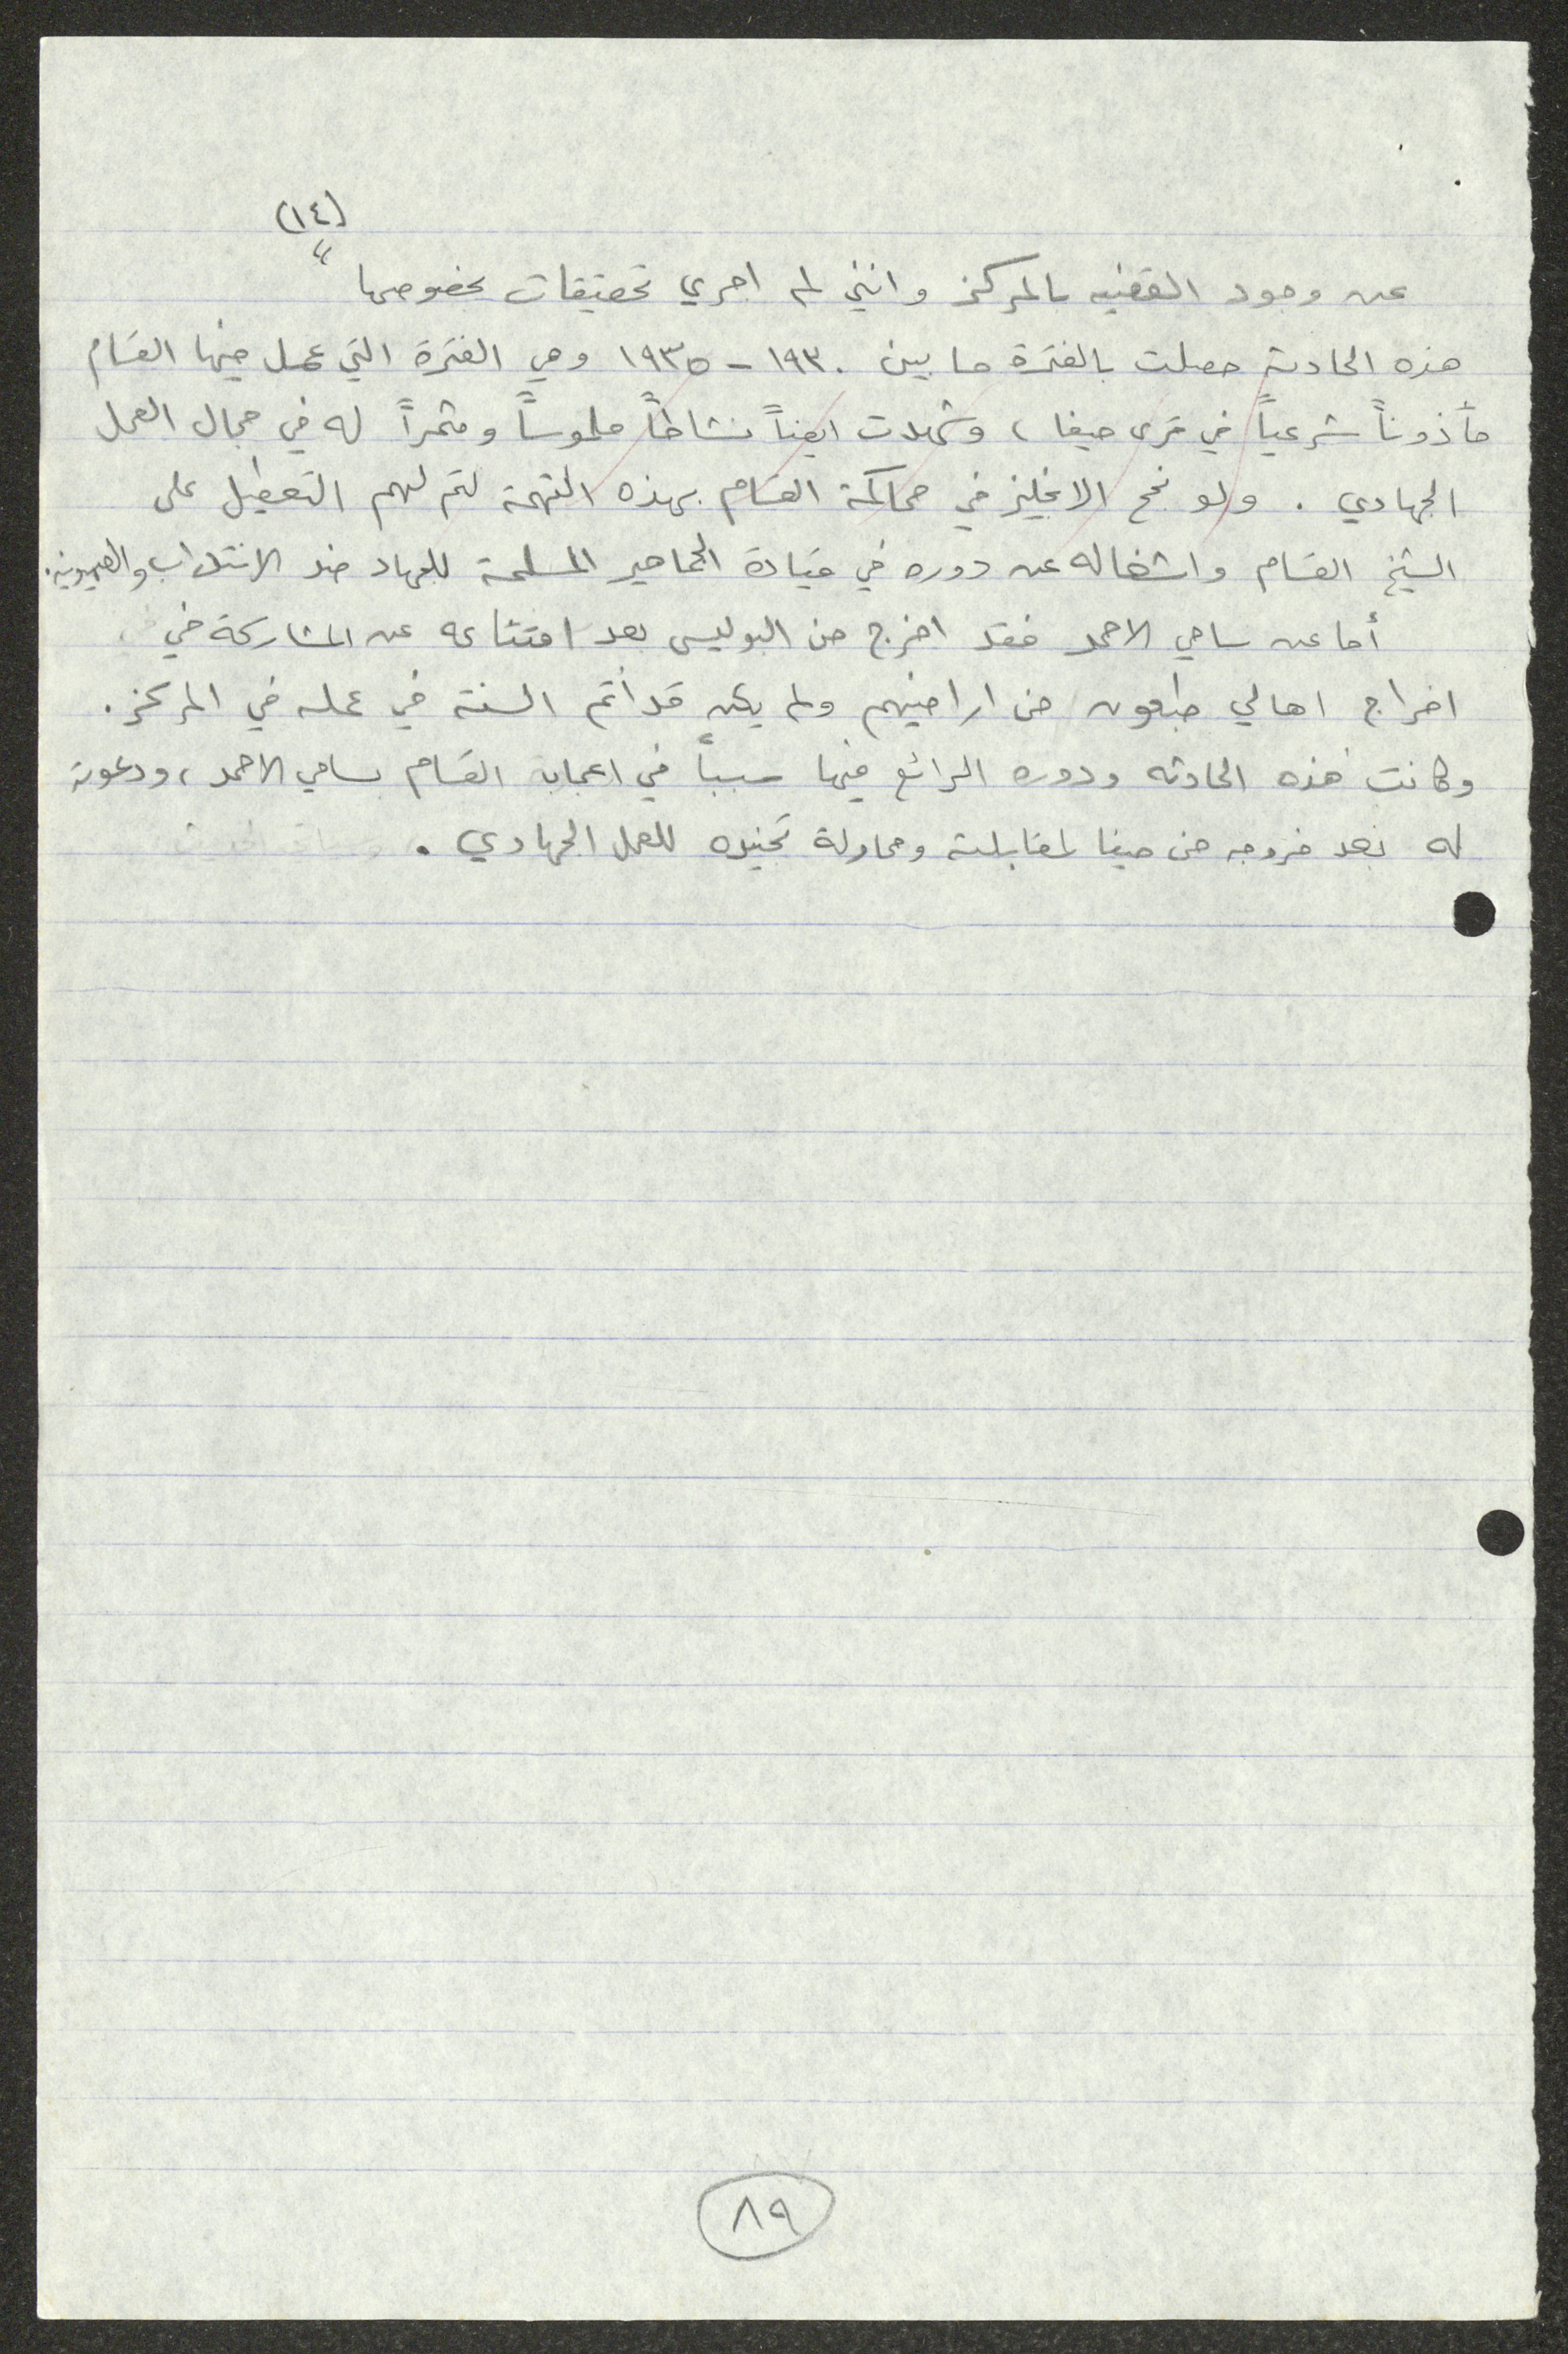 (١٤)
عن وجود القضيه بالمركز وانني لم اجري تحقيقات بخصوصها "
هذه الحادثة حصلت بالفترة ما بين ١٩٣٠ - ١٩٣٥ وهي الفترة التي عمل فيها القسام
مأذوناً شرعياً في قرى حيفا ، وشهدت ايضاً نشاطاً ملموساً ومثمراً له في مجال العمل
الجهادي . ولو نجح الانجليز في محاكمة القسام بهذه التهمة لتم لهم التعطيل على
الشيخ القسام واشغاله عن دوره في قيادة الجماهير المسلمة للجهاد ضد الانتداب والصهيونية.
أما عن سامي الاحمد فقد اخرج من البوليس بعد امتناعه عن المشاركة في
اخراج اهالي طبعون من اراضيهم ولم يكن قد أتم السنة في عمله في المركز .
وكانت هذه الحادثه ودوره الرائع فيها سبباً في اعجاب القسام بسامي الاحمد ، ودعوته
له بعد خروجه من حيفا لمقابلته ومحاولة تجنيده للعمل الجهادي .
٨٩